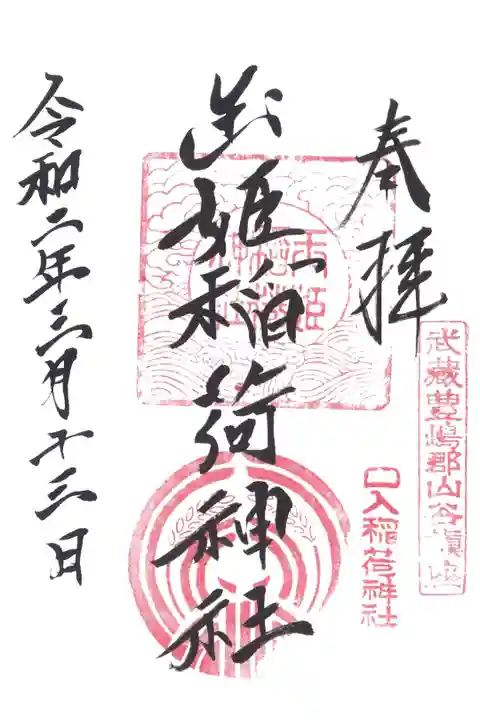 奉拝
武蔵豊嶋郡山谷鎮座
口入稲荷神社
玉姫稲荷神社
令和二年三月十三日